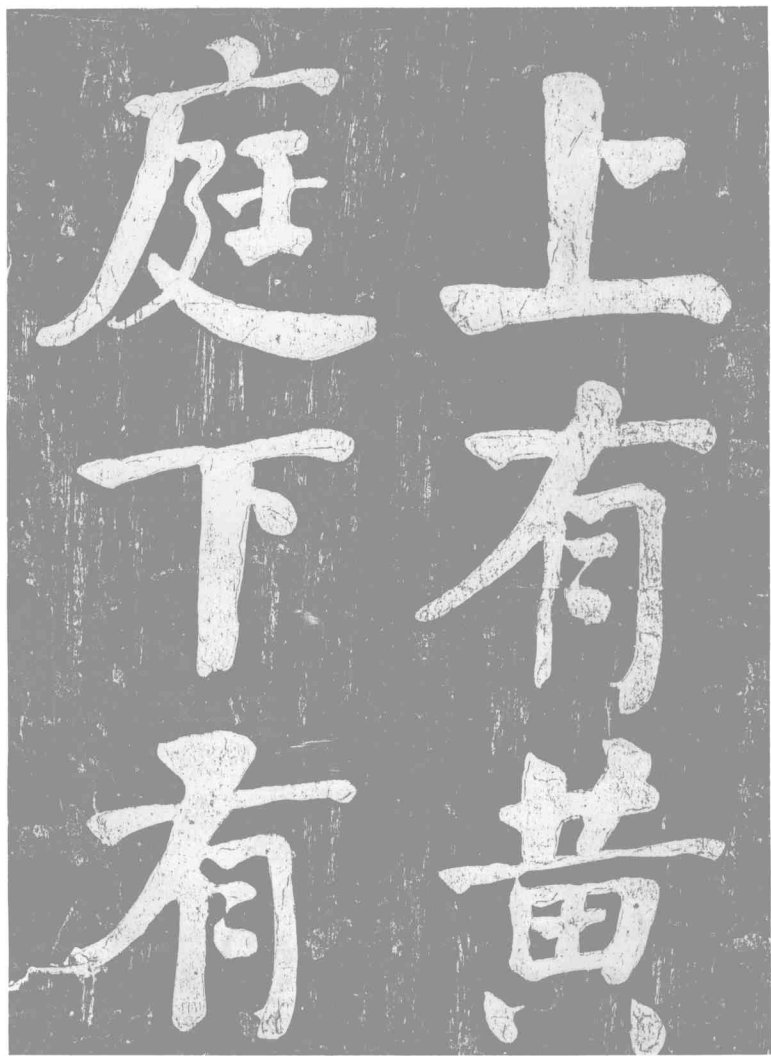 上有黄
庭下有